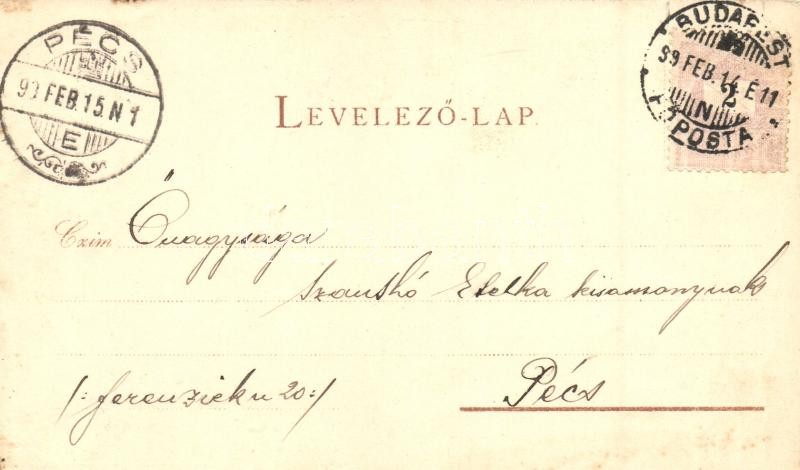 PÉCS
99 FEB. 15. N 1
E
BUDAPEST
99 FEB. 14. E 11
2
N
FŐPOSTA
LEVELEZŐ-LAP.
Czim Őnagysága
Szanthó Etelka kisasszonynak
Pécs
/: ferenziek u 20 :/